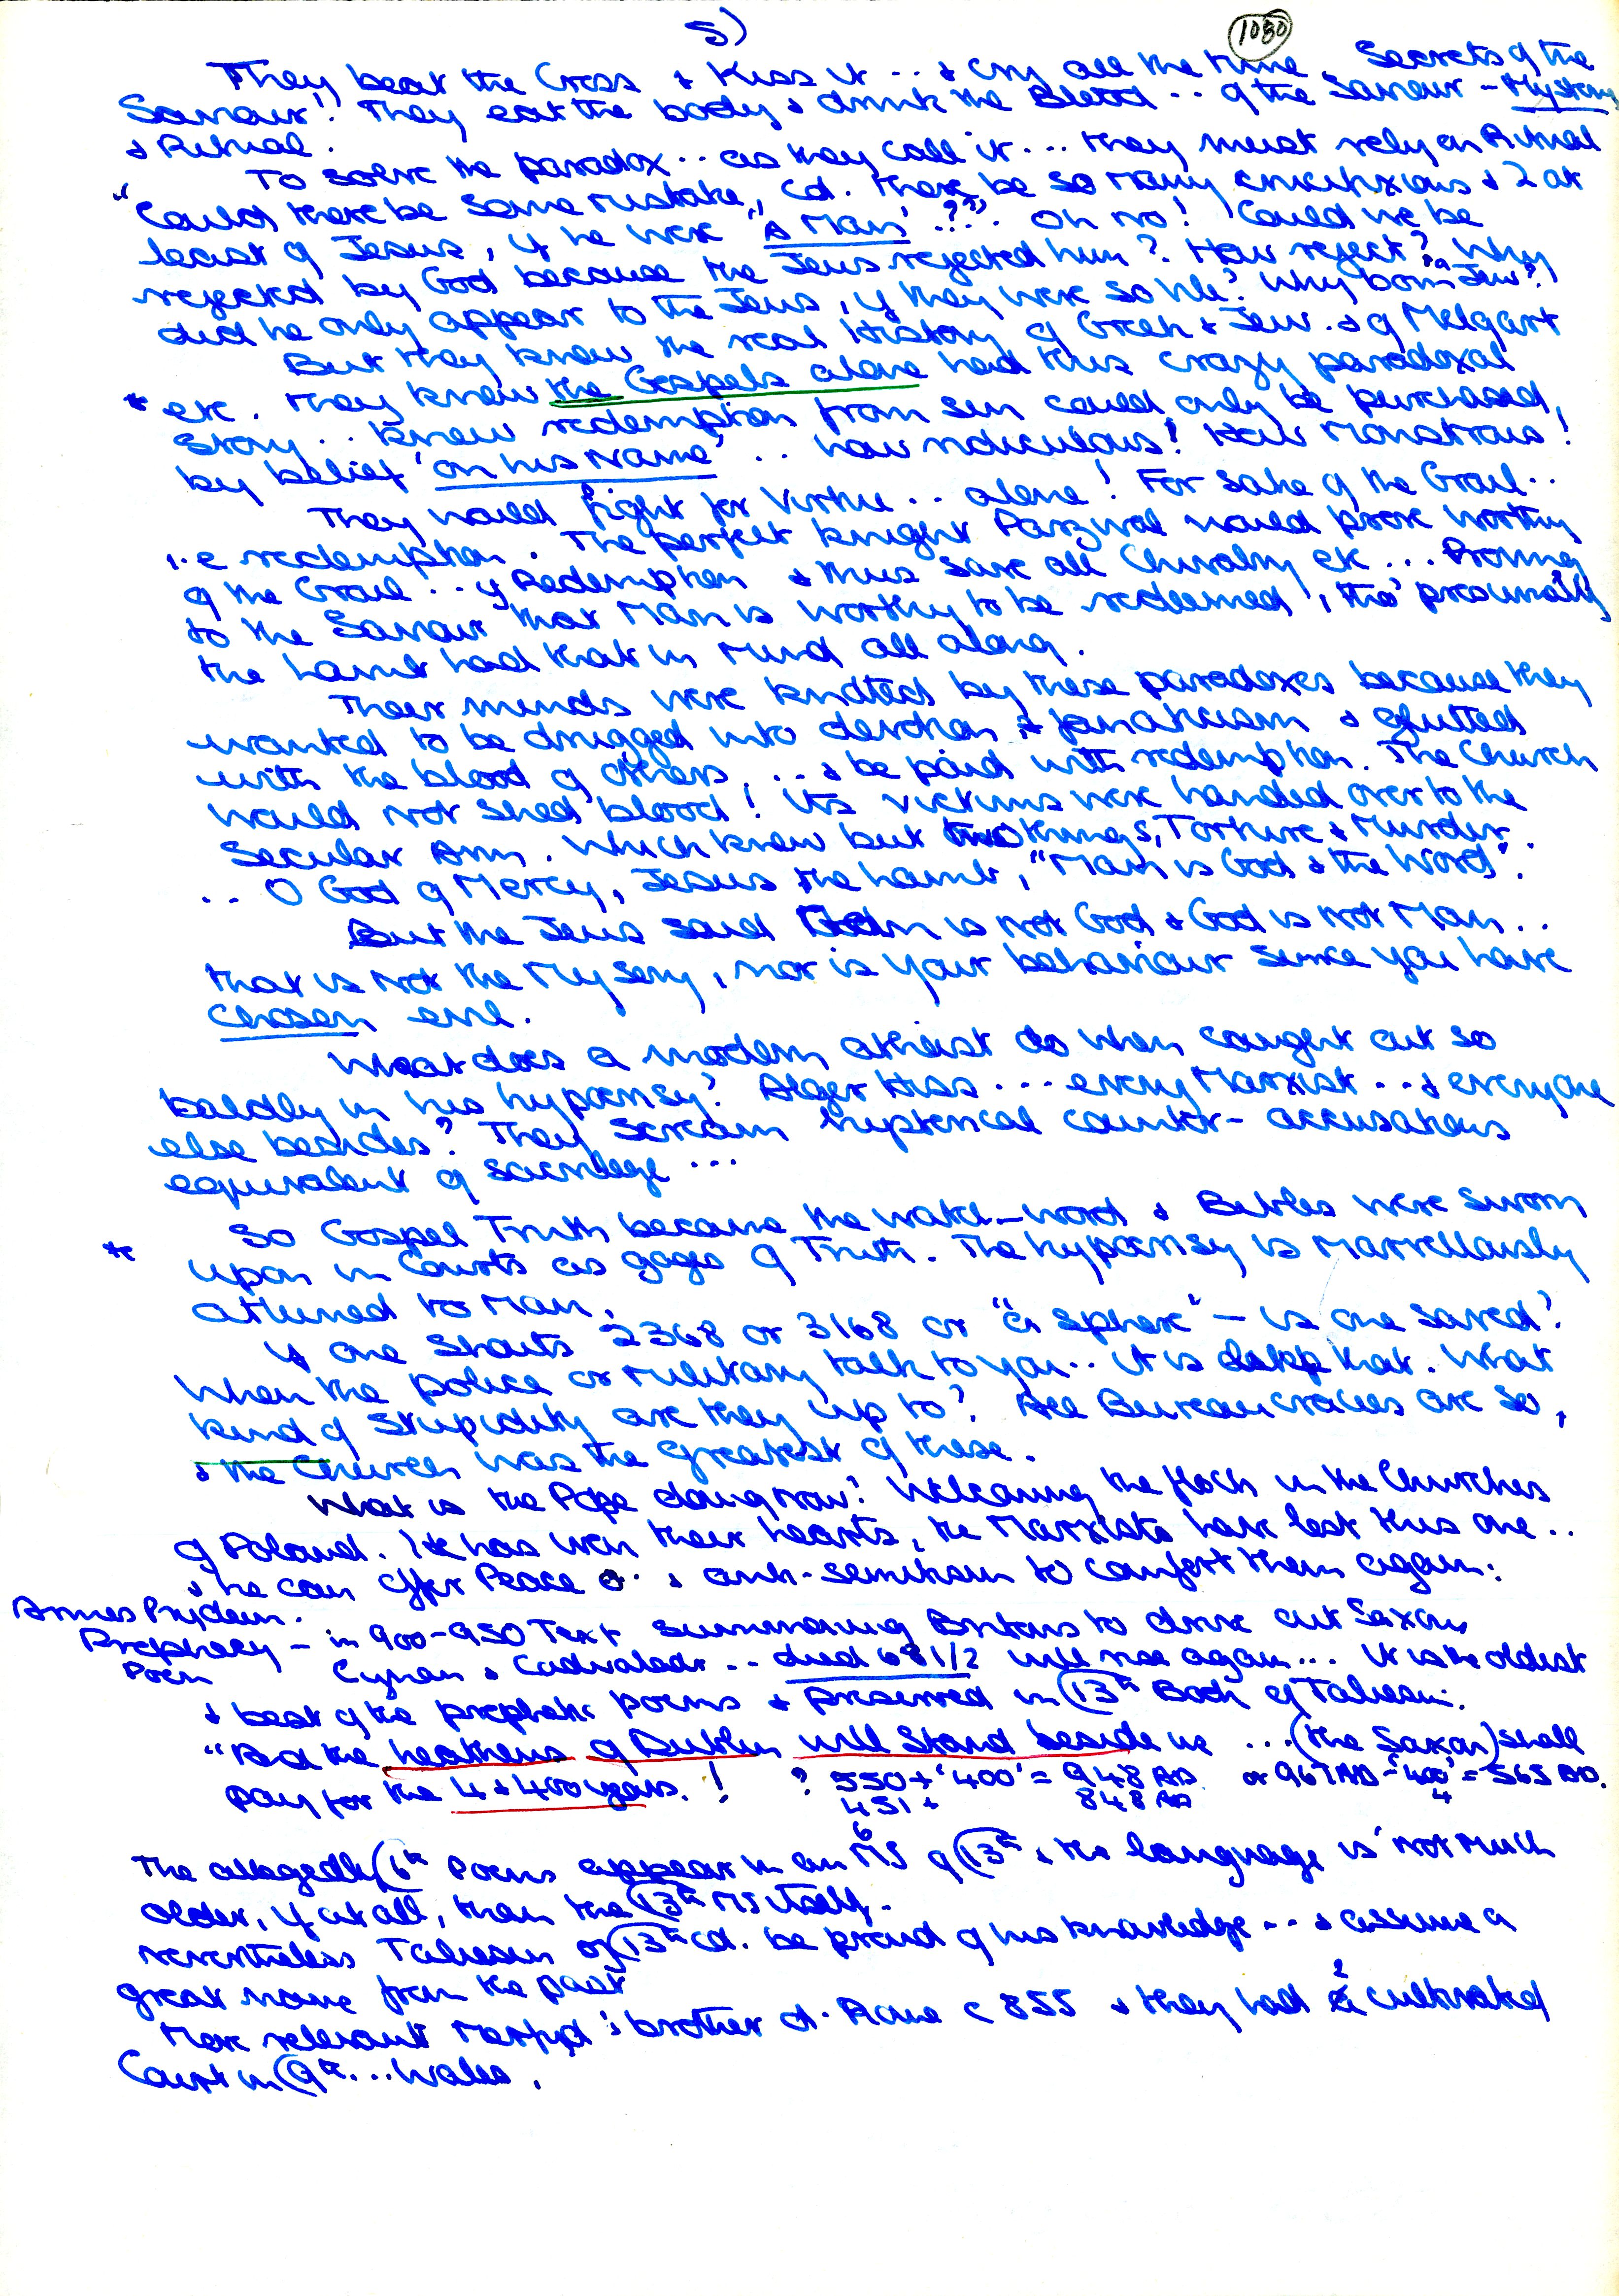 5)
1080
They beat the Cross & Kiss it .. & cry all the time. Secrets of the
Saviour! They eat the body & drink the Blood .. of the Saviour - Mystery
& Ritual.
To solve the paradox .. as they call it ... they must rely on Ritual
"Could there be some mistake, cd. there be so many crucifixions & 2 at
least of Jesus, if he were "A Man" ???". Oh no! Could we be
rejected by God because the Jews rejected him? How reject? Why
did he only appear to the Jews, if they were so vile? Why born a Jew?
But they knew the real History of Greek & Jew. & of Melqart
* etc. They knew the Gospels alone had this crazy paradoxal
story .. knew redemption from sin could only be purchased,
by belief 'on his Name' .. how ridiculous! How Monstrous!
They would fight for Virtue .. alone! For sake of the Grail..
i.e redemption. The perfect knight Parzival would prove worthy
of the Grail .. of Redemption & thus save all Chivalry etc ... Proving
to the Saviour that Man is worthy to be redeemed, tho' presumably
the Lamb had that in mind all along.
Their minds were knotted by these paradoxes because they
wanted to be drugged into devotion & fanaticism & glutted
with the blood of others ... & be paid with redemption. The Church
would not shed blood! Its victims were handed over to the
Secular Arm. Which knew but two things, Torture & Murder.
.. O God of Mercy, Jesus the Lamb, "Man is God & the Word".
But the Jews said Man is not God & God is not Man ..
that is not the Mysery, nor is your behaviour since you have
chosen evil.
What does a modern atheist do when caught out so
baldly in his hypocrisy? Alger Hiss ... every Marxist ... & everyone
else besides? They scream hysterical counter-accusations
equivalent of sacrilege ...
So Gospel Truth became the watch-word & Bibles were sworn
* upon in Courts as gages of Truth. The hypocrisy is marvellously
attuned to Man.
If one shouts 2368 or 3168 or "a sphere" - is one saved?
When the police or military talk to you .. it is like that. What
kind of stupidity are they up to? All Bureaucracies are so,
& the Church was the greatest of these.
What is the Pope doing now? Welcoming the flock in the Churches
of Poland. He has won their hearts, the Marxists have lost this one ..
& he can offer Peace .. & anti-semitism to comfort them again:
Armes Prydein.
Prophecy - in 900-950 Text summoning Britons to drive out Saxons
Poem Cynan & Cadwaladr .. died 681/2 will rise again ... It is the oldest
& best of the prophetic poems & preserved in 13th Book of Taliesin.
"And the heathens of Dublin will stand beside us ... (the Saxon) shall
pay for the 4 & 400 years.! ? 550 + '400' = 948 AD or 967 AD - '400' = 565 AD.
451 + 848 AD 4
6
The allegedly 6th Poems appear in an MS of 13th & the language is 'not much
older, if at all, than the 13th MS itself.
Nevertheless Taliesin of 13th cd. be proud of his knowledge ... & assume a
great name from the past
More relevant Merfyd's brother d. Aine c 855 & they had a 2 cultivated
Court in 9th ... Wales.